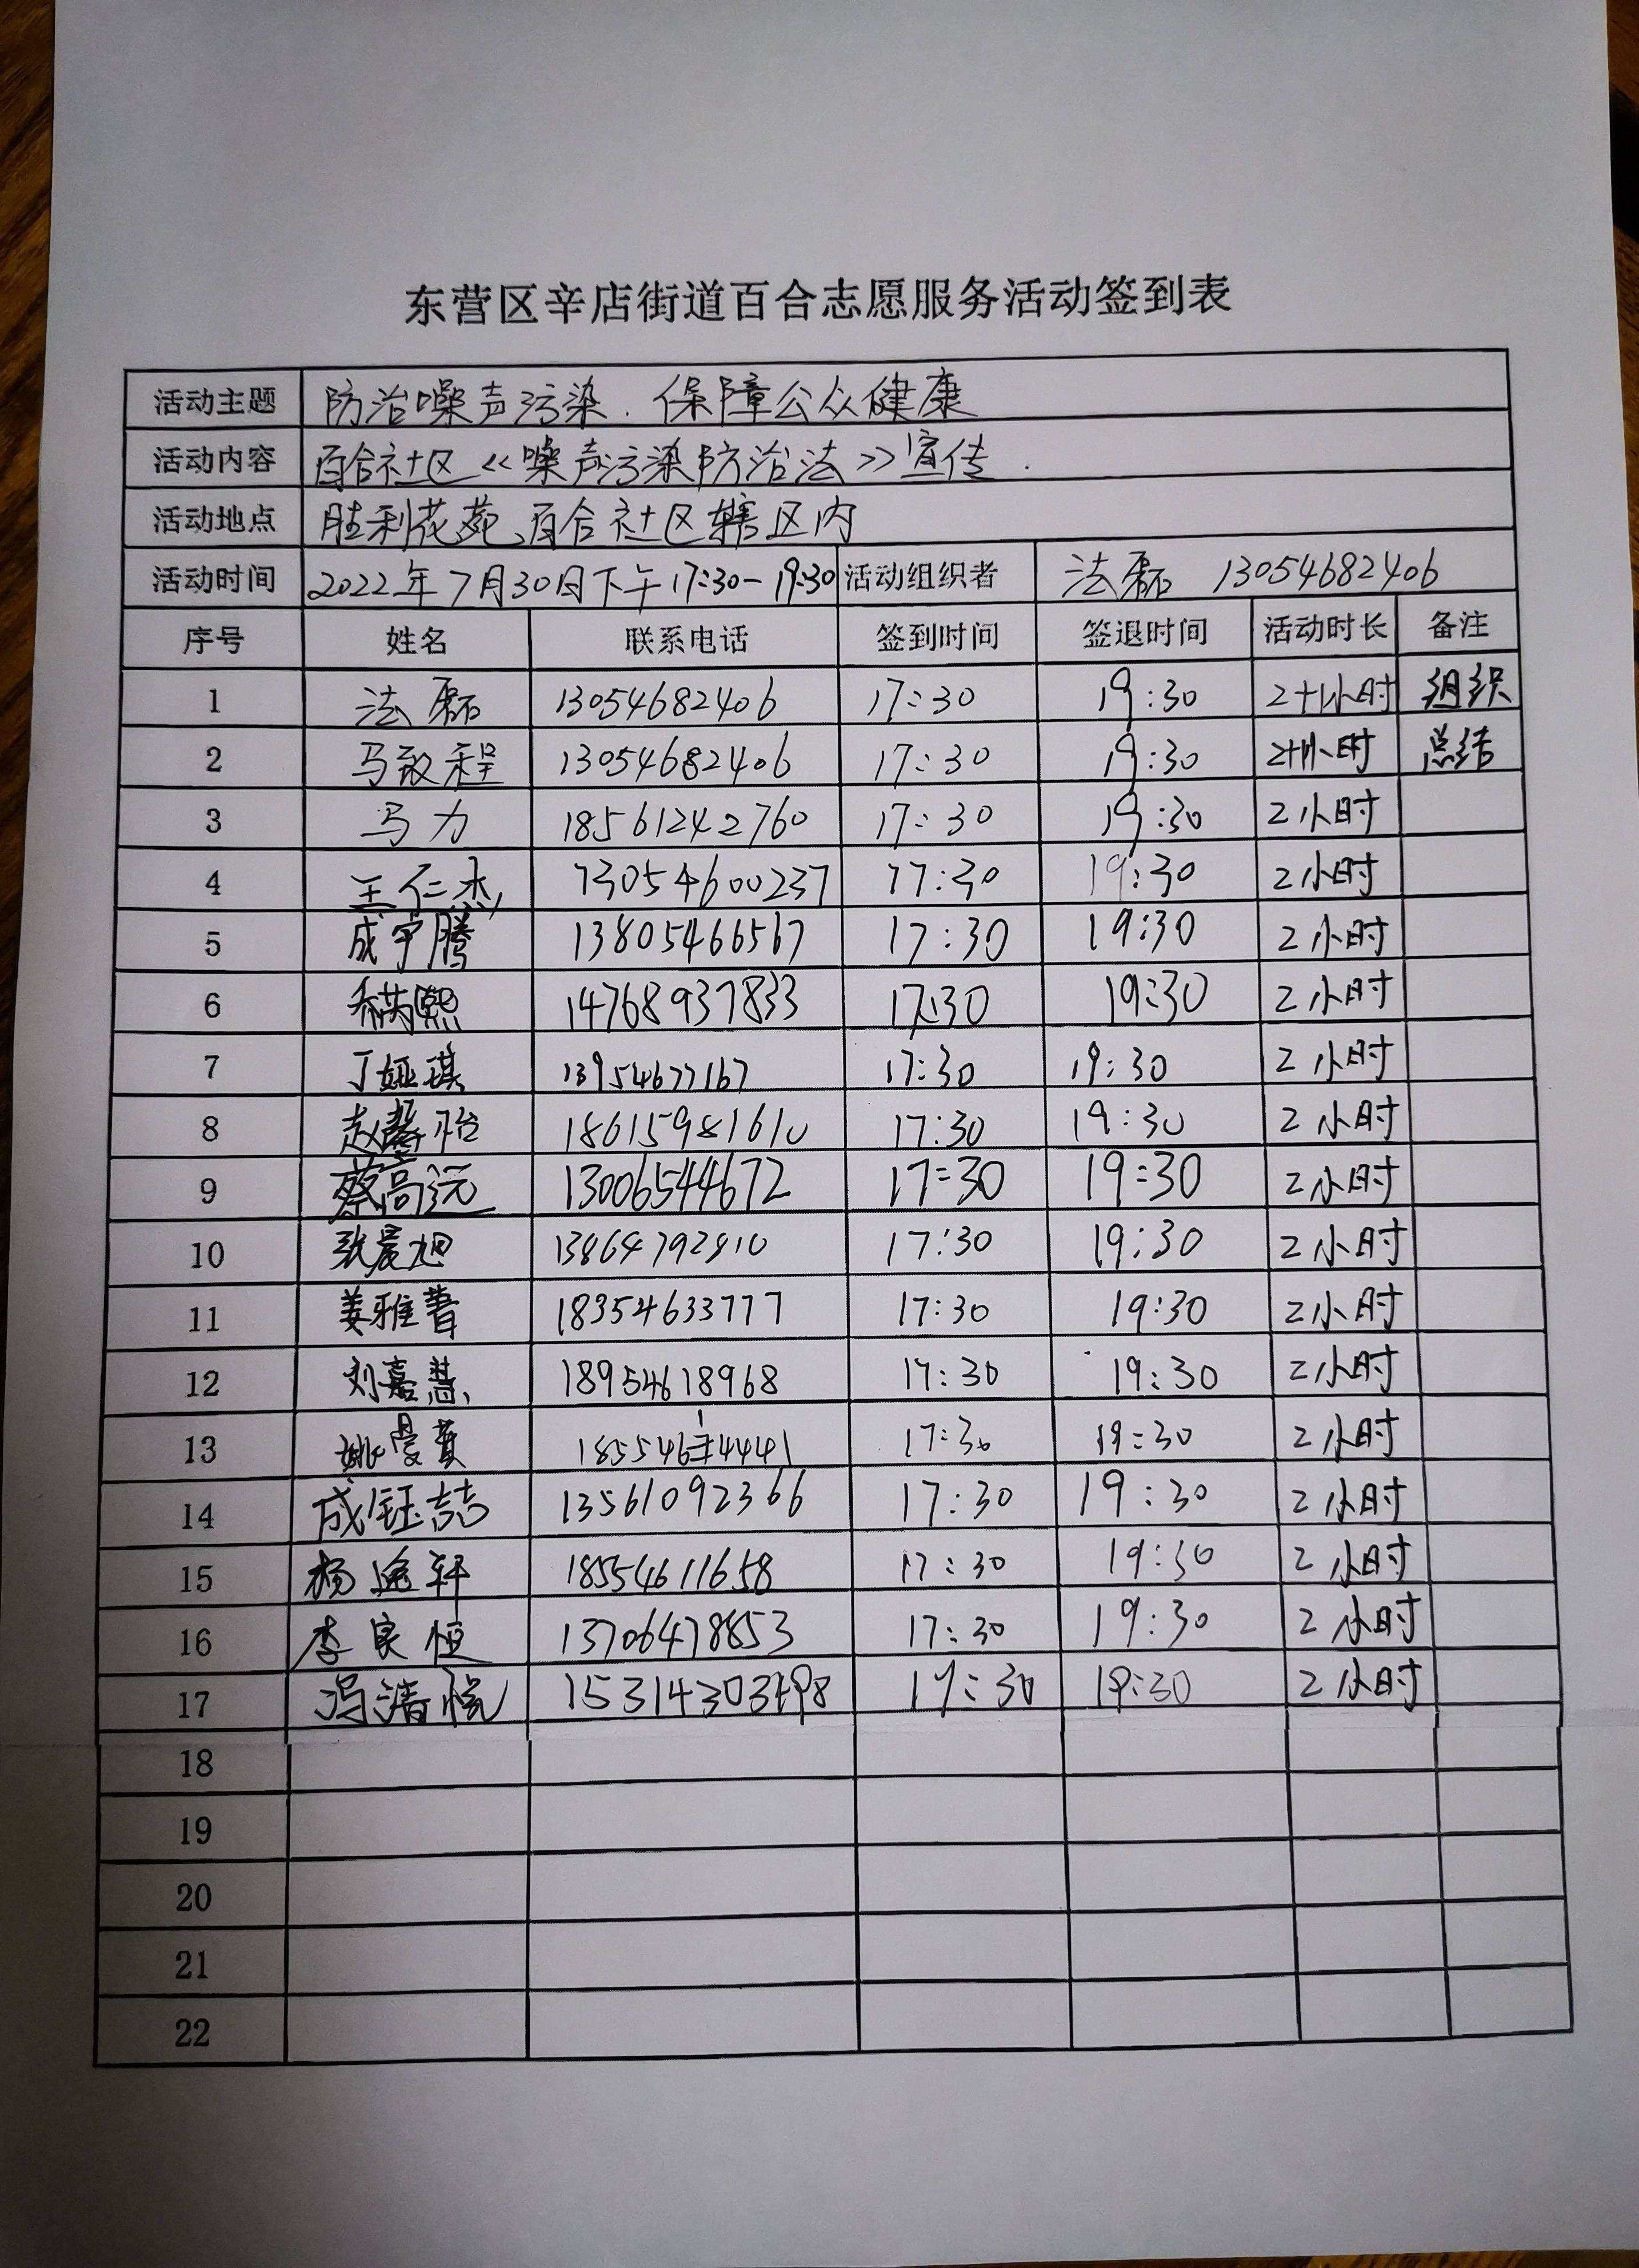 东营区辛店街道百合志愿服务活动签到表
活动主题 防治噪声污染.保障公众健康
活动内容 百合社区《噪声污染防治法》宣传.
活动地点 胜利花苑、百合社区辖区内
活动时间 2022年7月30日下午17:30-19:30 活动组织者 法磊 13054682406
序号 姓名 联系电话 签到时间 签退时间 活动时长 备注
1 法磊 13054682406 17:30 19:30 2+1小时 组织
2 马致程 13054682406 17:30 19:30 2+1小时 总结
3 马力 18561242760 17:30 19:30 2小时
4 王仁杰 13054600237 17:30 19:30 2小时
5 成宇腾 13805466567 17:30 19:30 2小时
6 17:30 14768937833 19:30 2小时
7 丁娅琪 13954677167 17:30 19:30 2小时
8 赵馨怡 18615981610 17:30 19:30 2小时
9 蔡高远 13006544672 17:30 19:30 2小时
10 张宸旭 17:30 19:30 2小时
11 姜雅菁 18354633777 17:30 19:30 2小时
12 刘嘉慧 18954618968 17:30 19:30 2小时
13 17:30 19:30 2小时
14 成钰喆 13561092366 17:30 19:30 2小时
15 18554611658 17:30 19:30 2小时
16 李良恒 13706478653 17:30 19:30 2小时
17 冯清悦 17:30 19:30 2小时
18
19
20
21
22